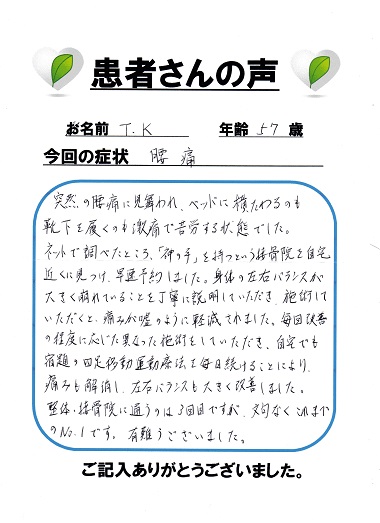 患者さんの声
お名前 T.K 年齢 57 歳
今回の症状 腰痛
突然の腰痛に見舞われ、ベッドに横たわるのも
靴下を履くのも激痛で苦労する状態でした。
ネットで調べたところ、「神の手」を持つという接骨院を自宅
近くに見つけ、早速予約しました。身体の左右バランスが
大きく崩れていることを丁寧に説明していただき、施術して
いただくと、痛みが嘘のように軽減されました。毎回改善
の程度に応じた異なった施術をしていただき、自宅でも
宿題の四足移動運動療法を毎日続けることにより、
痛みも解消し、左右バランスも大きく改善しました。
整体・接骨院に通うのは3回目ですが、文句なくこれまで
のNo.1です。有難うございました。
ご記入ありがとうございました。